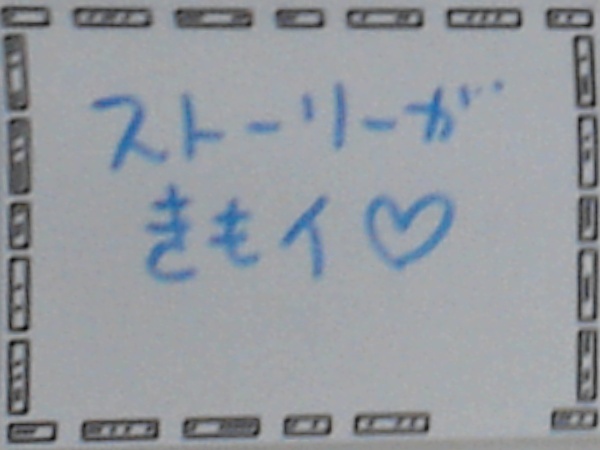 ストーリーが
きもイ♡